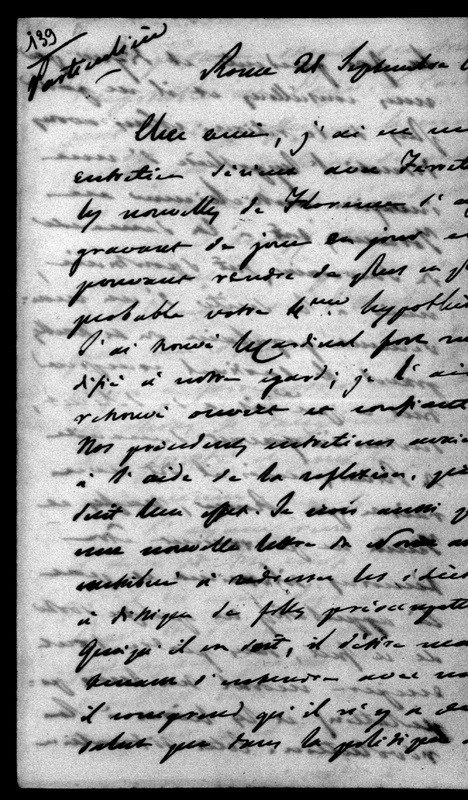 139
Particulière
Rome 28 Septembre
Cher ami, j'ai eu un
entretien sérieux avec
les nouvelles de Florence s'ag
gravant de jour en jour et
pouvant rendre de plus en pl
probable votre 4ème hypothès
J'ai trouvé le Cardinal fort mo
difié à notre égard; je l'ai
retrouvé ouvert et confiant
Nos précédents entretiens avaie
à l'aide de la réflexion, pro
duit leur effet. Je crois aussi q
une nouvelle lettre du Nonce a
contribué à redresser les idées
à dissiper de folles préoccupati
Quoiqu'il en soit, il désire main
tenant s'entendre avec no
il comprend qu'il n'y a de
salut que dans la politique